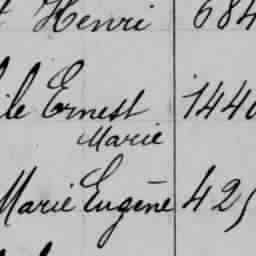 Henri 684
ile Ernest 1440
Marie
Marie Eugène 425